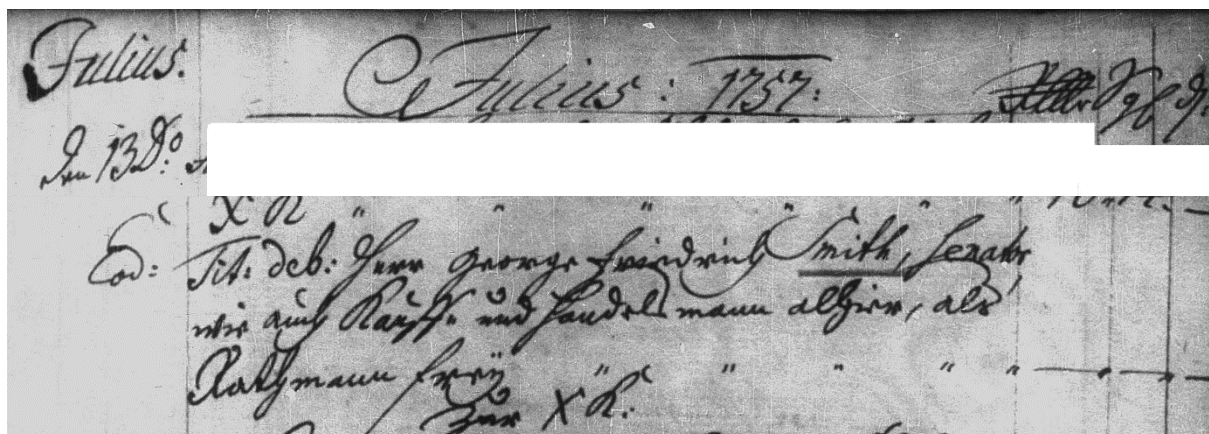 Julius.
Julius: 1757:
Den 13 Do:
X R " " " " " "
Eod: Tit: deb: Herr George Friedrich Smith, Senator
wie auch Kauff- und Handelsmann alhier, als
Rathmann frey " " " " "
Zur X R: